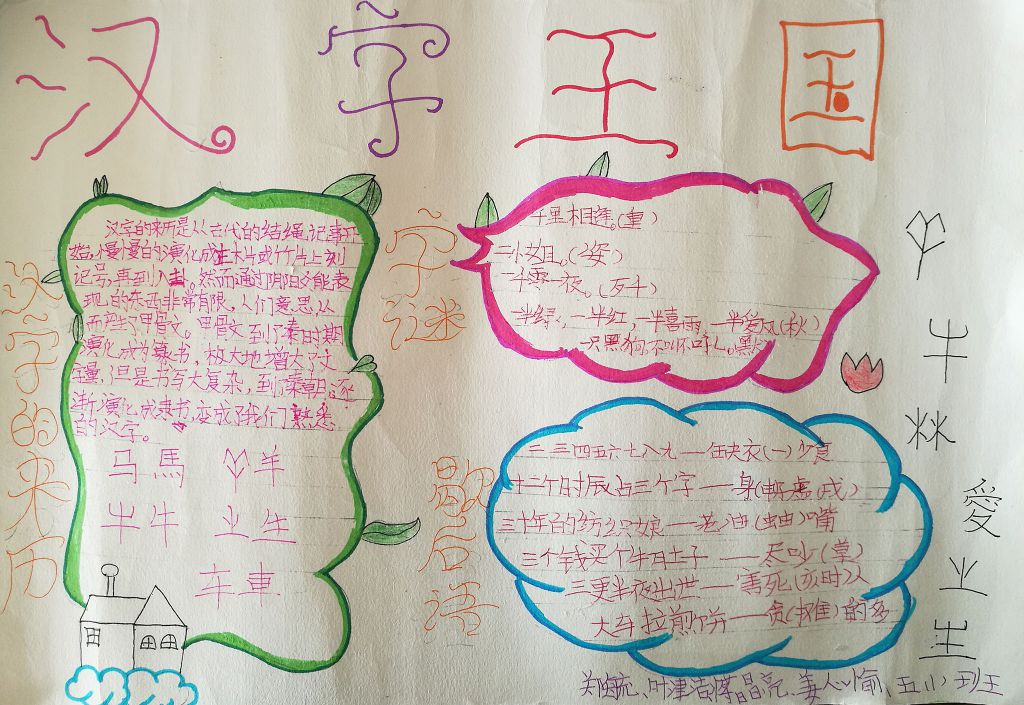 汉字王国
汉字的来历
汉字的来历是从古代的结绳记事开
始,慢慢的演化成在木片或竹片上刻
记号,再到八卦。然而通过阴阳爻能表
现的东西非常有限,人们意思从
而产生了甲骨文。甲骨文到了秦时期
演化成为篆书,极大地增大了文
字量,但是书写太复杂,到秦朝逐
渐演化成隶书,变成了我们熟悉
的汉字。
马馬 羊
牛牛 业生
车車
字谜
千里相逢。(重)
二小姐。(姿)
一千零一夜。(歹+)
一半绿,一半红,一半喜雨,一半爱风(秋)
一只黑狗,不叫不吼。默
歇后语
二三四五六七八九——缺衣(一)少食
十二个时辰占三个字——身(申)虚(戌)
三十年的纺织娘——老油(蛐)嘴
三个钱买个牛肚子——尽吵(草)
三更半夜出世——害死(亥时)人
大车拉煎饼——贪(摊)的多
牛
林
愛
业
生